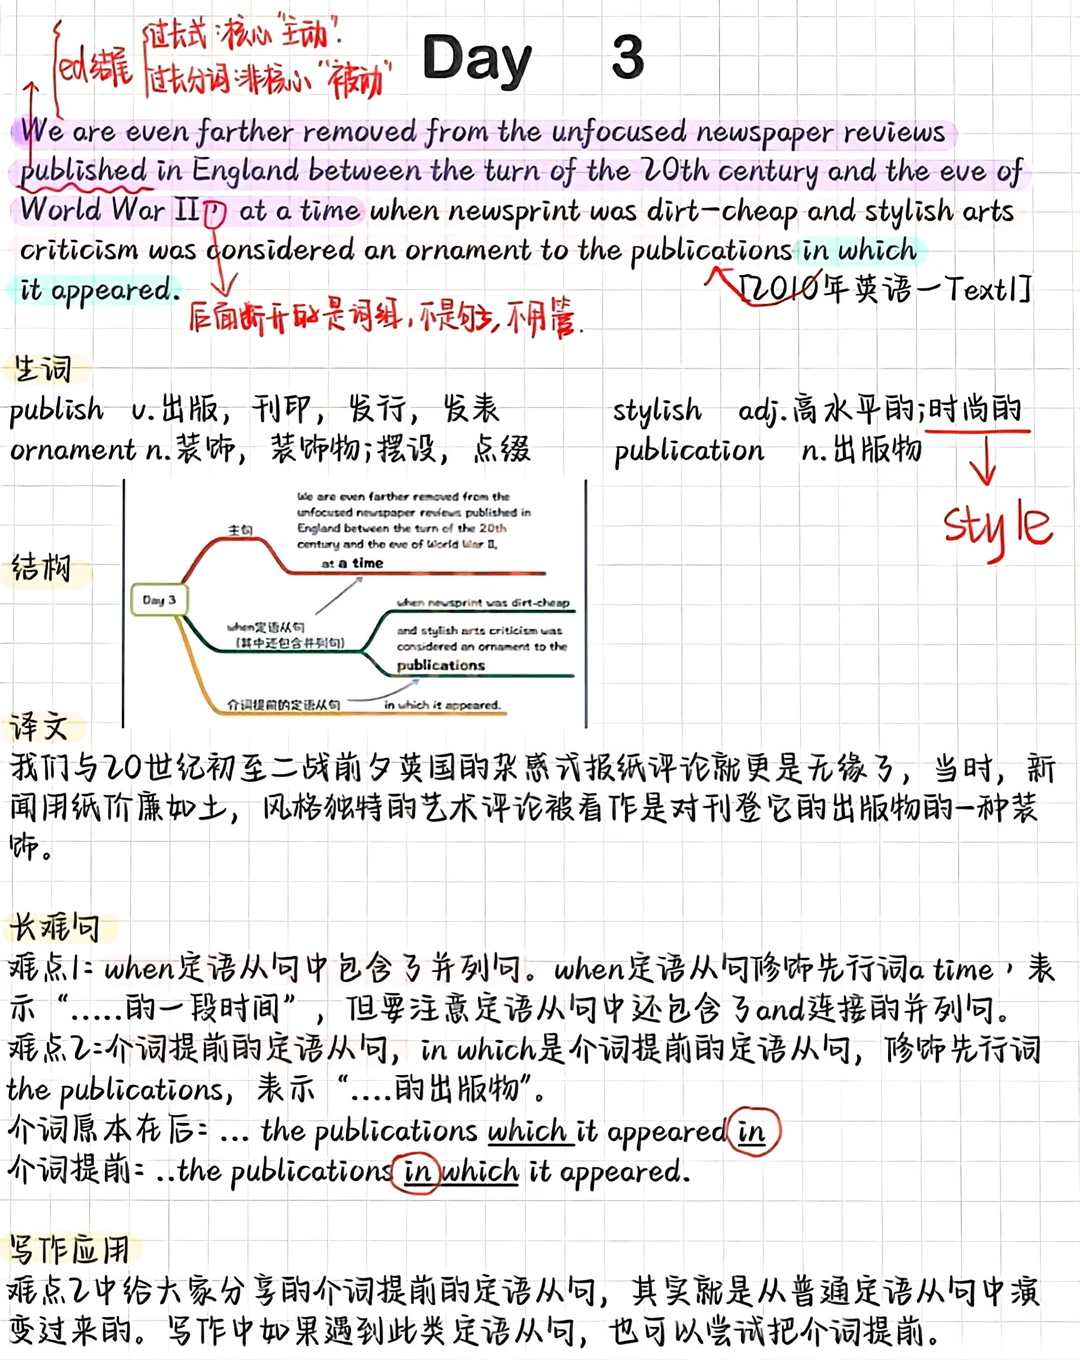 ed结尾
过去式:核心"主动".
过去分词:非核心"被动"
Day 3
We are even farther removed from the unfocused newspaper reviews
published in England between the turn of the 20th century and the eve of
World War II, at a time when newsprint was dirt-cheap and stylish arts
criticism was considered an ornament to the publications in which
it appeared.
[2010年英语一Text1]
后面断开的是词组,不是句,不用管.
生词
publish v.出版，刊印，发行，发表
stylish adj.高水平的;时尚的
ornament n.装饰，装饰物;摆设，点缀
publication n.出版物
style
结构
Day 3
主句
We are even farther removed from the
unfocused newspaper reviews published in
England between the turn of the 20th
century and the eve of World War II,
at a time
when定语从句
(其中还包含并列句)
when newsprint was dirt-cheap
and stylish arts criticism was
considered an ornament to the
publications
介词提前的定语从句
in which it appeared.
译文
我们与20世纪初至二战前夕英国的杂感式报纸评论就更是无缘了，当时，新
闻用纸价廉如土，风格独特的艺术评论被看作是对刊登它的出版物的一种装
饰。
长难句
难点1：when定语从句中包含了并列句。when定语从句修饰先行词a time，表
示“.....的一段时间”，但要注意定语从句中还包含了and连接的并列句。
难点2:介词提前的定语从句，in which是介词提前的定语从句，修饰先行词
the publications，表示“....的出版物”。
介词原本在后：... the publications which it appeared in
介词提前：..the publications in which it appeared.
写作应用
难点2中给大家分享的介词提前的定语从句，其实就是从普通定语从句中演
变过来的。写作中如果遇到此类定语从句，也可以尝试把介词提前。